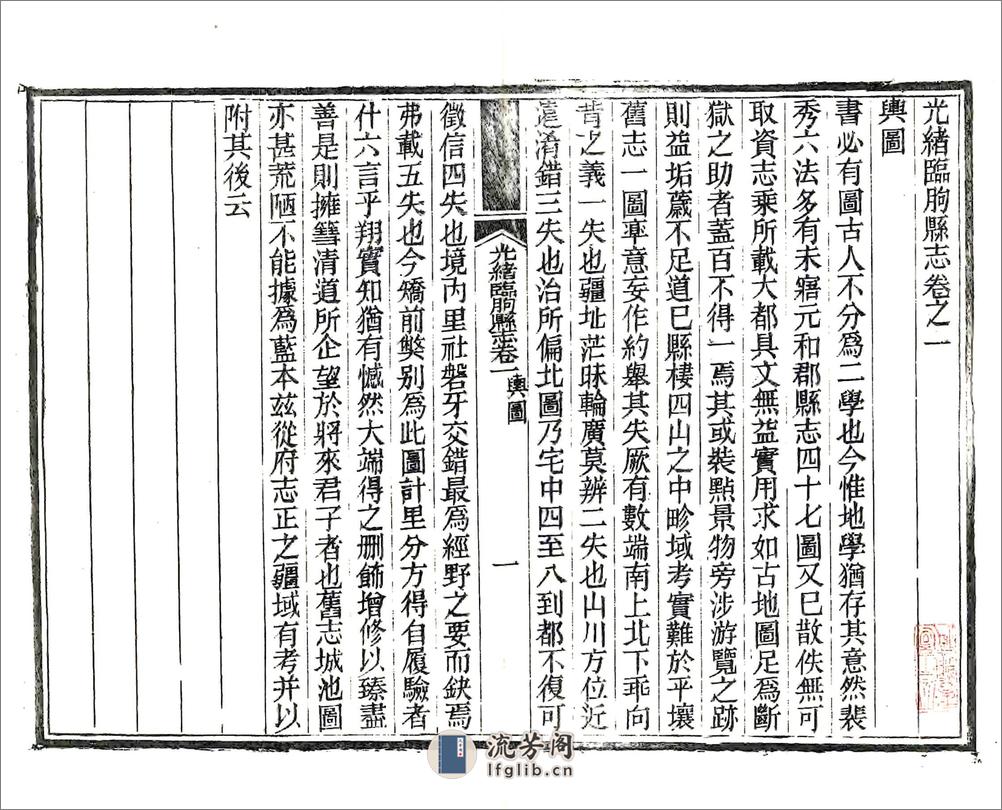 光緒臨朐縣志卷之一
輿圖
書必有圖古人不分爲二學也今惟地學猶存其意然裴
秀六法多有未窹元和郡縣志四十七圖又已散佚無可
取資志乘所載大都具文無益實用求如古地圖足爲斷
獄之助者蓋百不得一焉其或裝點景物旁涉游覽之跡
則益垢薉不足道已縣棲四山之中畛域考實難於平壤
舊志一圖率意妄作約舉其失厥有數端南上北下乖向
背之義一失也疆址茫昧輪廣莫辨二失也山川方位近
遠淆錯三失也治所偏北圖乃宅中四至八到都不復可
光緒臨朐縣志卷一 輿圖 一
徵信四失也境內里社磐牙交錯最爲經野之要而缺焉
弗載五失也今矯前獘别爲此圖計里分方得自履驗者
什六言乎翔實知猶有憾然大端得之刪飾增修以臻盡
善是則擁篲清道所企望於將來君子者也舊志城池圖
亦甚荒陋不能據爲藍本茲從府志正之疆域有考并以
附其後云
流芳阁
lfglib.cn